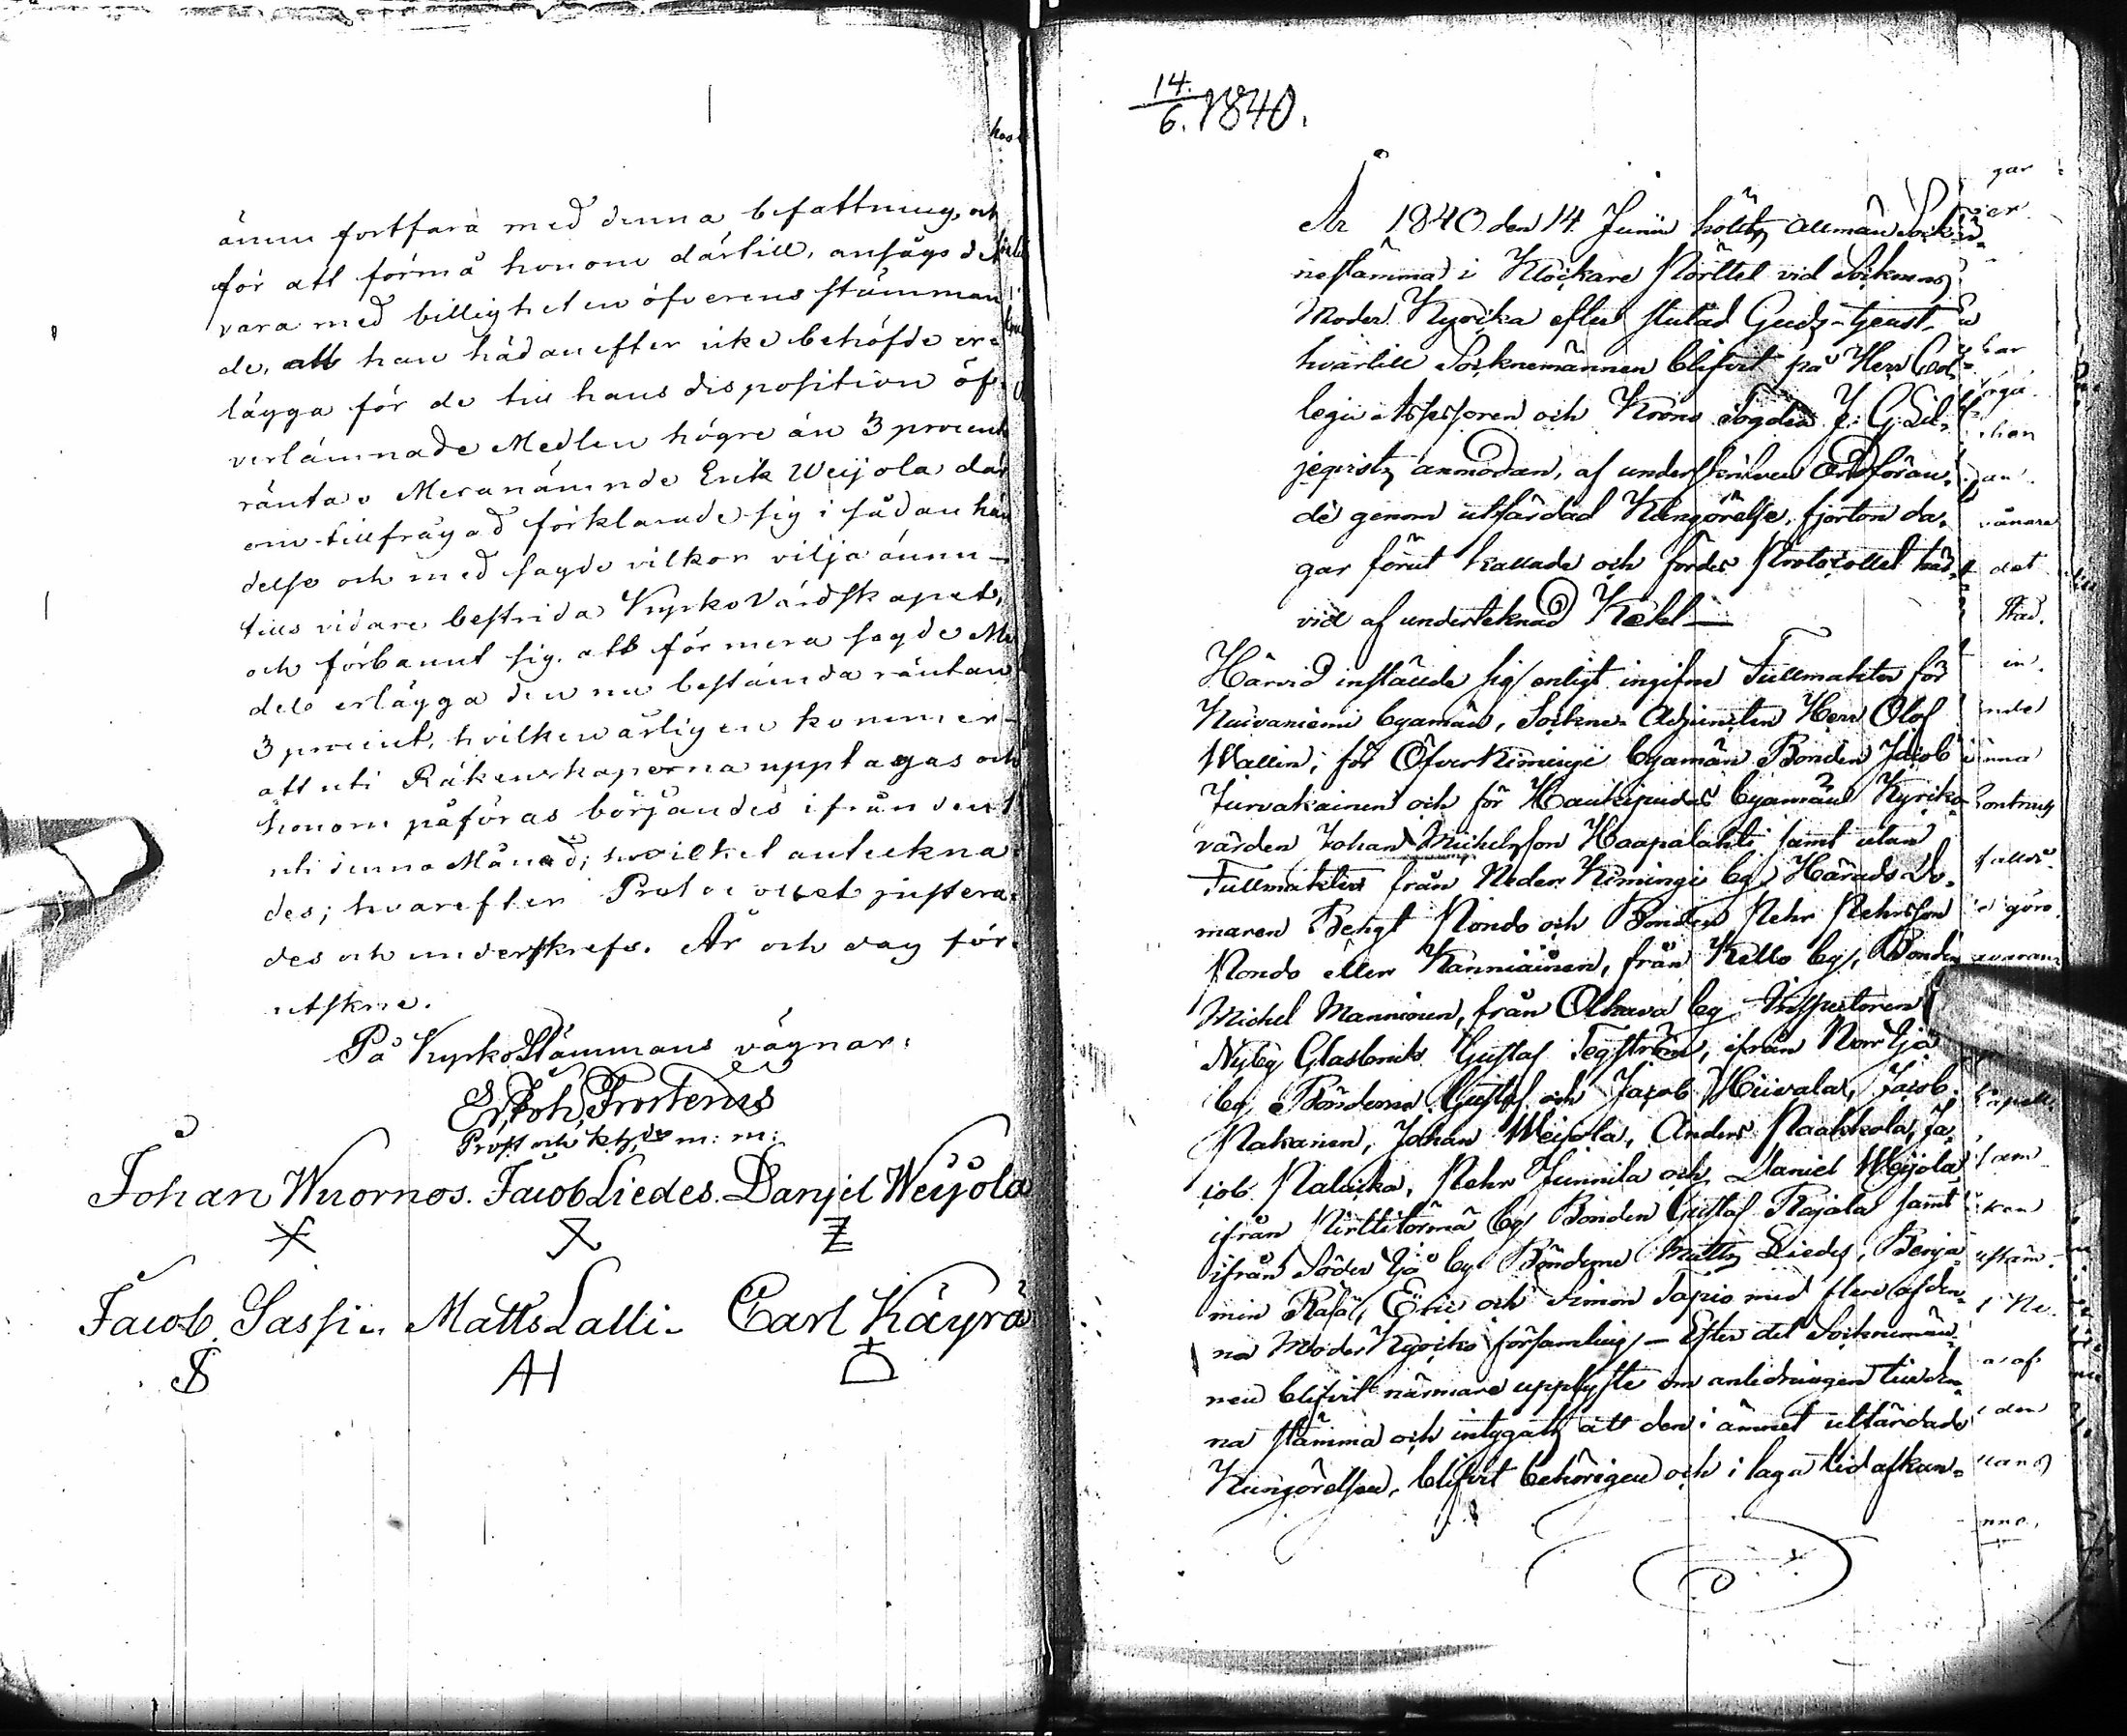 ännu fortfara med denna befattning, och
för att förmå honom därtill, ansågs det
vara med billigheten öfverensstämman
de, att han hädanefter icke behöfde er-
lägga för de till hans disposition öf-
verlämnade Medlen högre än 3 procent
ränta. Meranämnde Erik Weijola där
om tillfrågad förklarade sig i sådan hän
delse och med sagde vilkor vilja ännu
tills vidare bestrida Kyrkovärdskapet,
och förbannt sig att för mera sagde Me
del erlägga den nu bestämda räntan
3 procent, hvilken årligen kommer
att uti Räkenskaperna upptagas och
honom påföras börjandes ifrån den 1
uti denna Månad; hvilket anteckna-
des; hvarefter Protocollet justera-
des och underskrefs. År och dag för-
utskne.
På Kyrkostämmans vägnar:
Er. Joh. Frosterus
Prost och khde m: m:
Johan Wuornos. Jacob Liedes. Danjel Weijola
Jacob Sassi. Matts Lalli. Carl Käyrä
AH
14.
6. 1840.
År 1840 den 14 Junii hölts allmän Sock-
nestämma i Klockare Pörttet vid Socknens
Moder Kyrcka efter slutad Gudz-tjenst,
hvartill Socknemännen blifvit på Herr Col-
legii Assessoren och Krono Fogden J. G. Lil-
jeqvists anmodan, af underskrifven Ordföran-
de genom utfärdad Kungörelse, fjorton da-
gar förut kallade och fördes Protocollet här-
vid af undertecknad
Härvid inställde sig enligt ingifne Fullmakter för
Kuivaniemi byamän, Sockne-Adjuncten Herr Olof
Wallin, för Öfver Kiminge byamän Bonden Jacob
Jurvakainen och för Haukipudas byamän Kyrko-
värden Johan Michelsson Haapalahti samt utan
Fullmakter från Neder Kiminge by Härads Do-
maren Bengt Pondo och Bonden Pehr Pehrsson
Pondo eller Kanniainen, från Kello by, Bonden
Michel Manninen, från Olhava by Inspectoren
Nyby Glasbruk Gustaf Tegström, ifrån Norr Ijo
by Bönderne Gustaf och Jacob Hiivala, Jacob
Pakanen, Johan Weijola, Anders Paakkola, Ja-
cob Palaika, Pehr Junnila och Daniel Weijola,
ifrån Pirttitörmä by Bonden Gustaf Rajala samt
ifrån Söder Ijo by Bönderne Matts Liedes, Benja-
min Räsä, Eric och Simon Tapio med flere af den-
na Moder Kyrcko församling. – Efter det Socknemän-
nen blifvit närmare upplyste om anledningen till den-
na stämma och intygats att den i ämnet utfärdade
Kungörelsen, blifvit behörigen och i laga tid afkun-